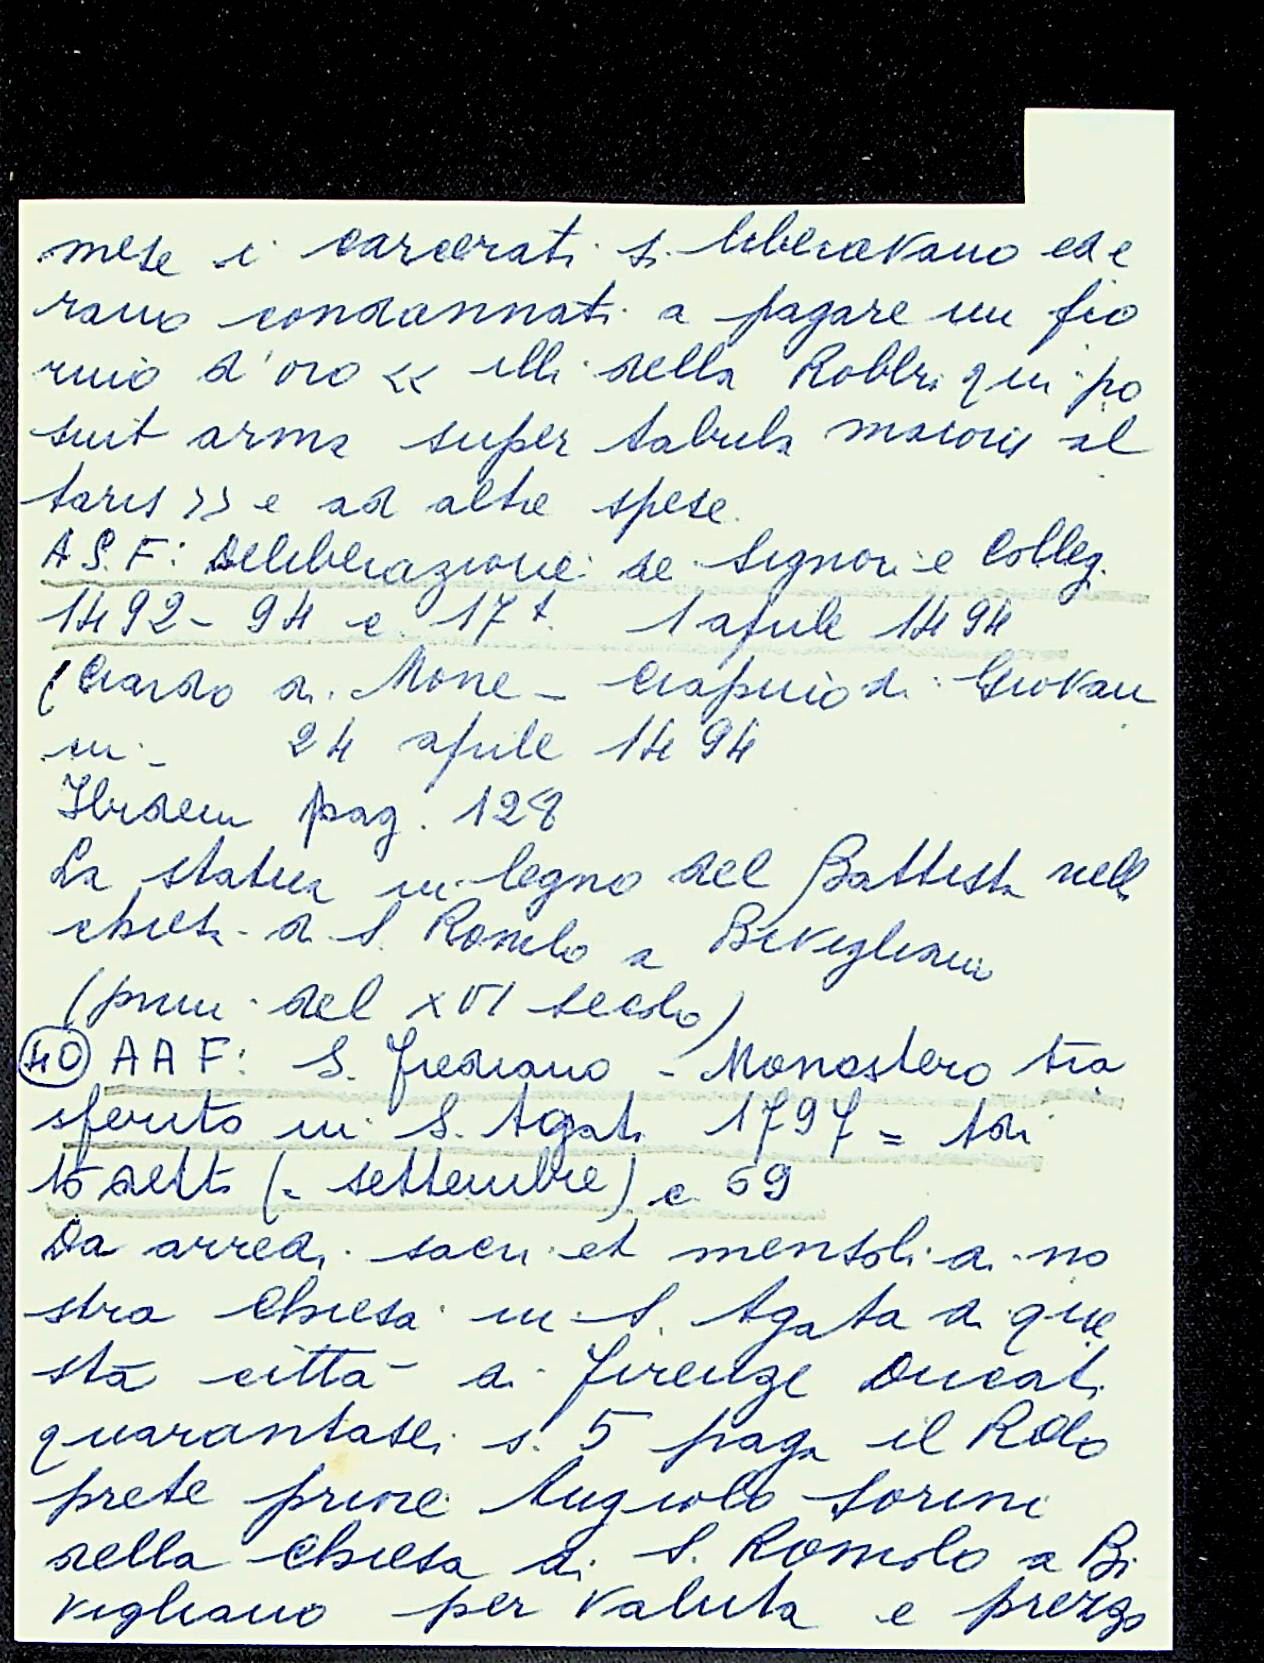 mese i carcerati si liberavano ed e
rano condannati a pagare un fio
rino d'oro << illi della Robbia qui po
suit arma super tabula maioris al
taris >> e ad altre spese.
A.S.F: Deliberazione de Signori e Colleg.
1492-94 c. 17t. 1 aprile 1494
di Mone - di Giovan
ni - 24 aprile 1494
Ibidem pag. 128
La statua in legno del Battista nella
chiesa di S. Romolo a Bivigliano
(prim. del XVI secolo)
40 AAF: S. Frediano - Monastero tra
sferito in S. Agata 1797 =
to detto (- settembre) c. 69
Da arredi sacri et mensoli di no
stra Chiesa in S. Agata di que
sta città di Firenze Ducati
quarantasei s. 5 paga il Rdo
prete priore Angiolo Sorini
della Chiesa di S. Romolo a Bi
vigliano per valuta e prezzo